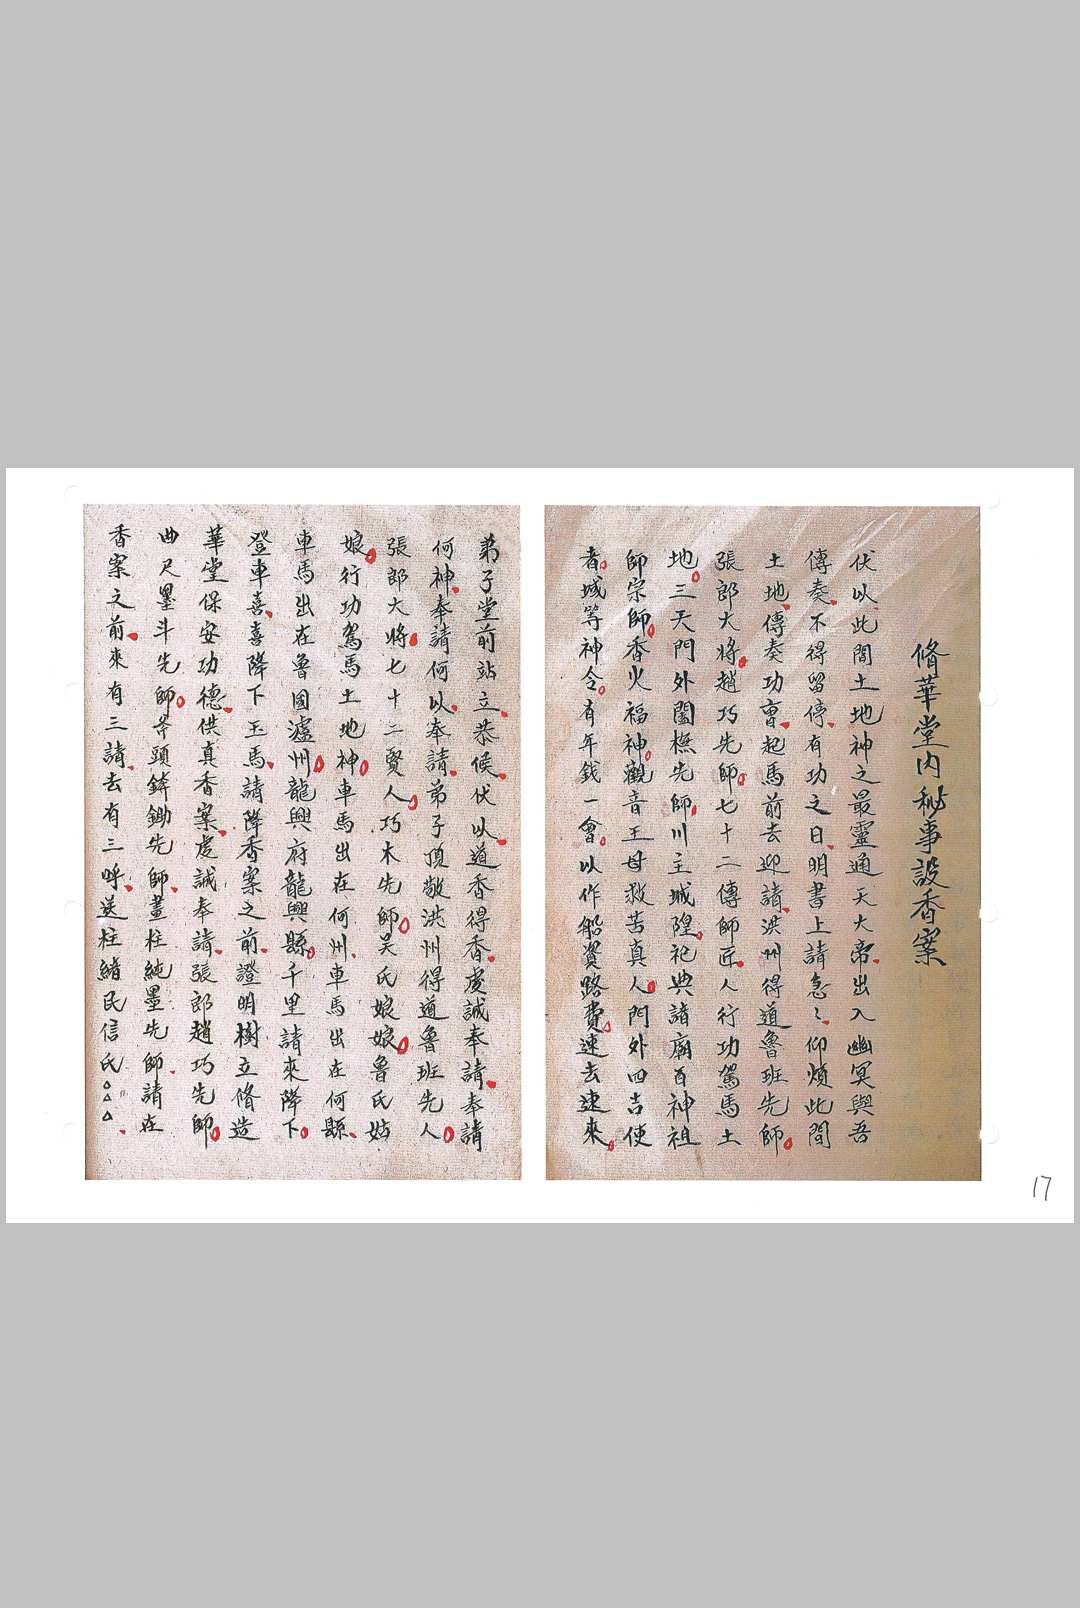 脩華堂內秘事設香案
伏以此間土地神之最靈通天大帝出入幽冥與吾
傳奏不得留停有功之日明書上請急々仰煩此間
土地傳奏功曹起馬前去迎請洪州得道魯班先師
張郎大將趙巧先師七十二傳師匠人行功駕馬土
地三天門外闔橅先師川主城隍祀典諸廟百神祖
師宗師香火福神觀音王母救苦真人門外四吉使
者城等神令有年錢一會以作船資路費速去速來
弟子堂前站立恭候伏以道香得香虔誠奉請奉請
何神奉請何以奉請弟子頂敬洪州得道魯班先人
張郎大將七十二賢人巧木先師吴氏娘娘魯氏姑
娘行功駕馬土地神車馬出在何州車馬出在何縣
車馬出在魯國瀘州龍興府龍興縣千里請來降下
登車喜喜降下玉馬請降香案之前證明樹立脩造
華堂保安功德供真香案虔誠奉請張郎趙巧先師
曲尺墨斗先師斧頭錛鋤先師畫柱純墨先師請在
香案之前來有三請去有三呼送柱緒民信氏△△△
17